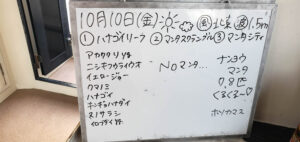 10月10日(金)
風 北東 波 1.5m
① ハナゴイリーフ ② マンタスクランブル ③ マンタシティ
アカククリ yg
ニシキフウライウオ
イエロージョー
クマノミ
ハナゴイ
キンギョハナダイ
スノサラシ
NOマンタ...
ナンヨウ
マンタ
8匹
ぐるぐる~
ホソカマス